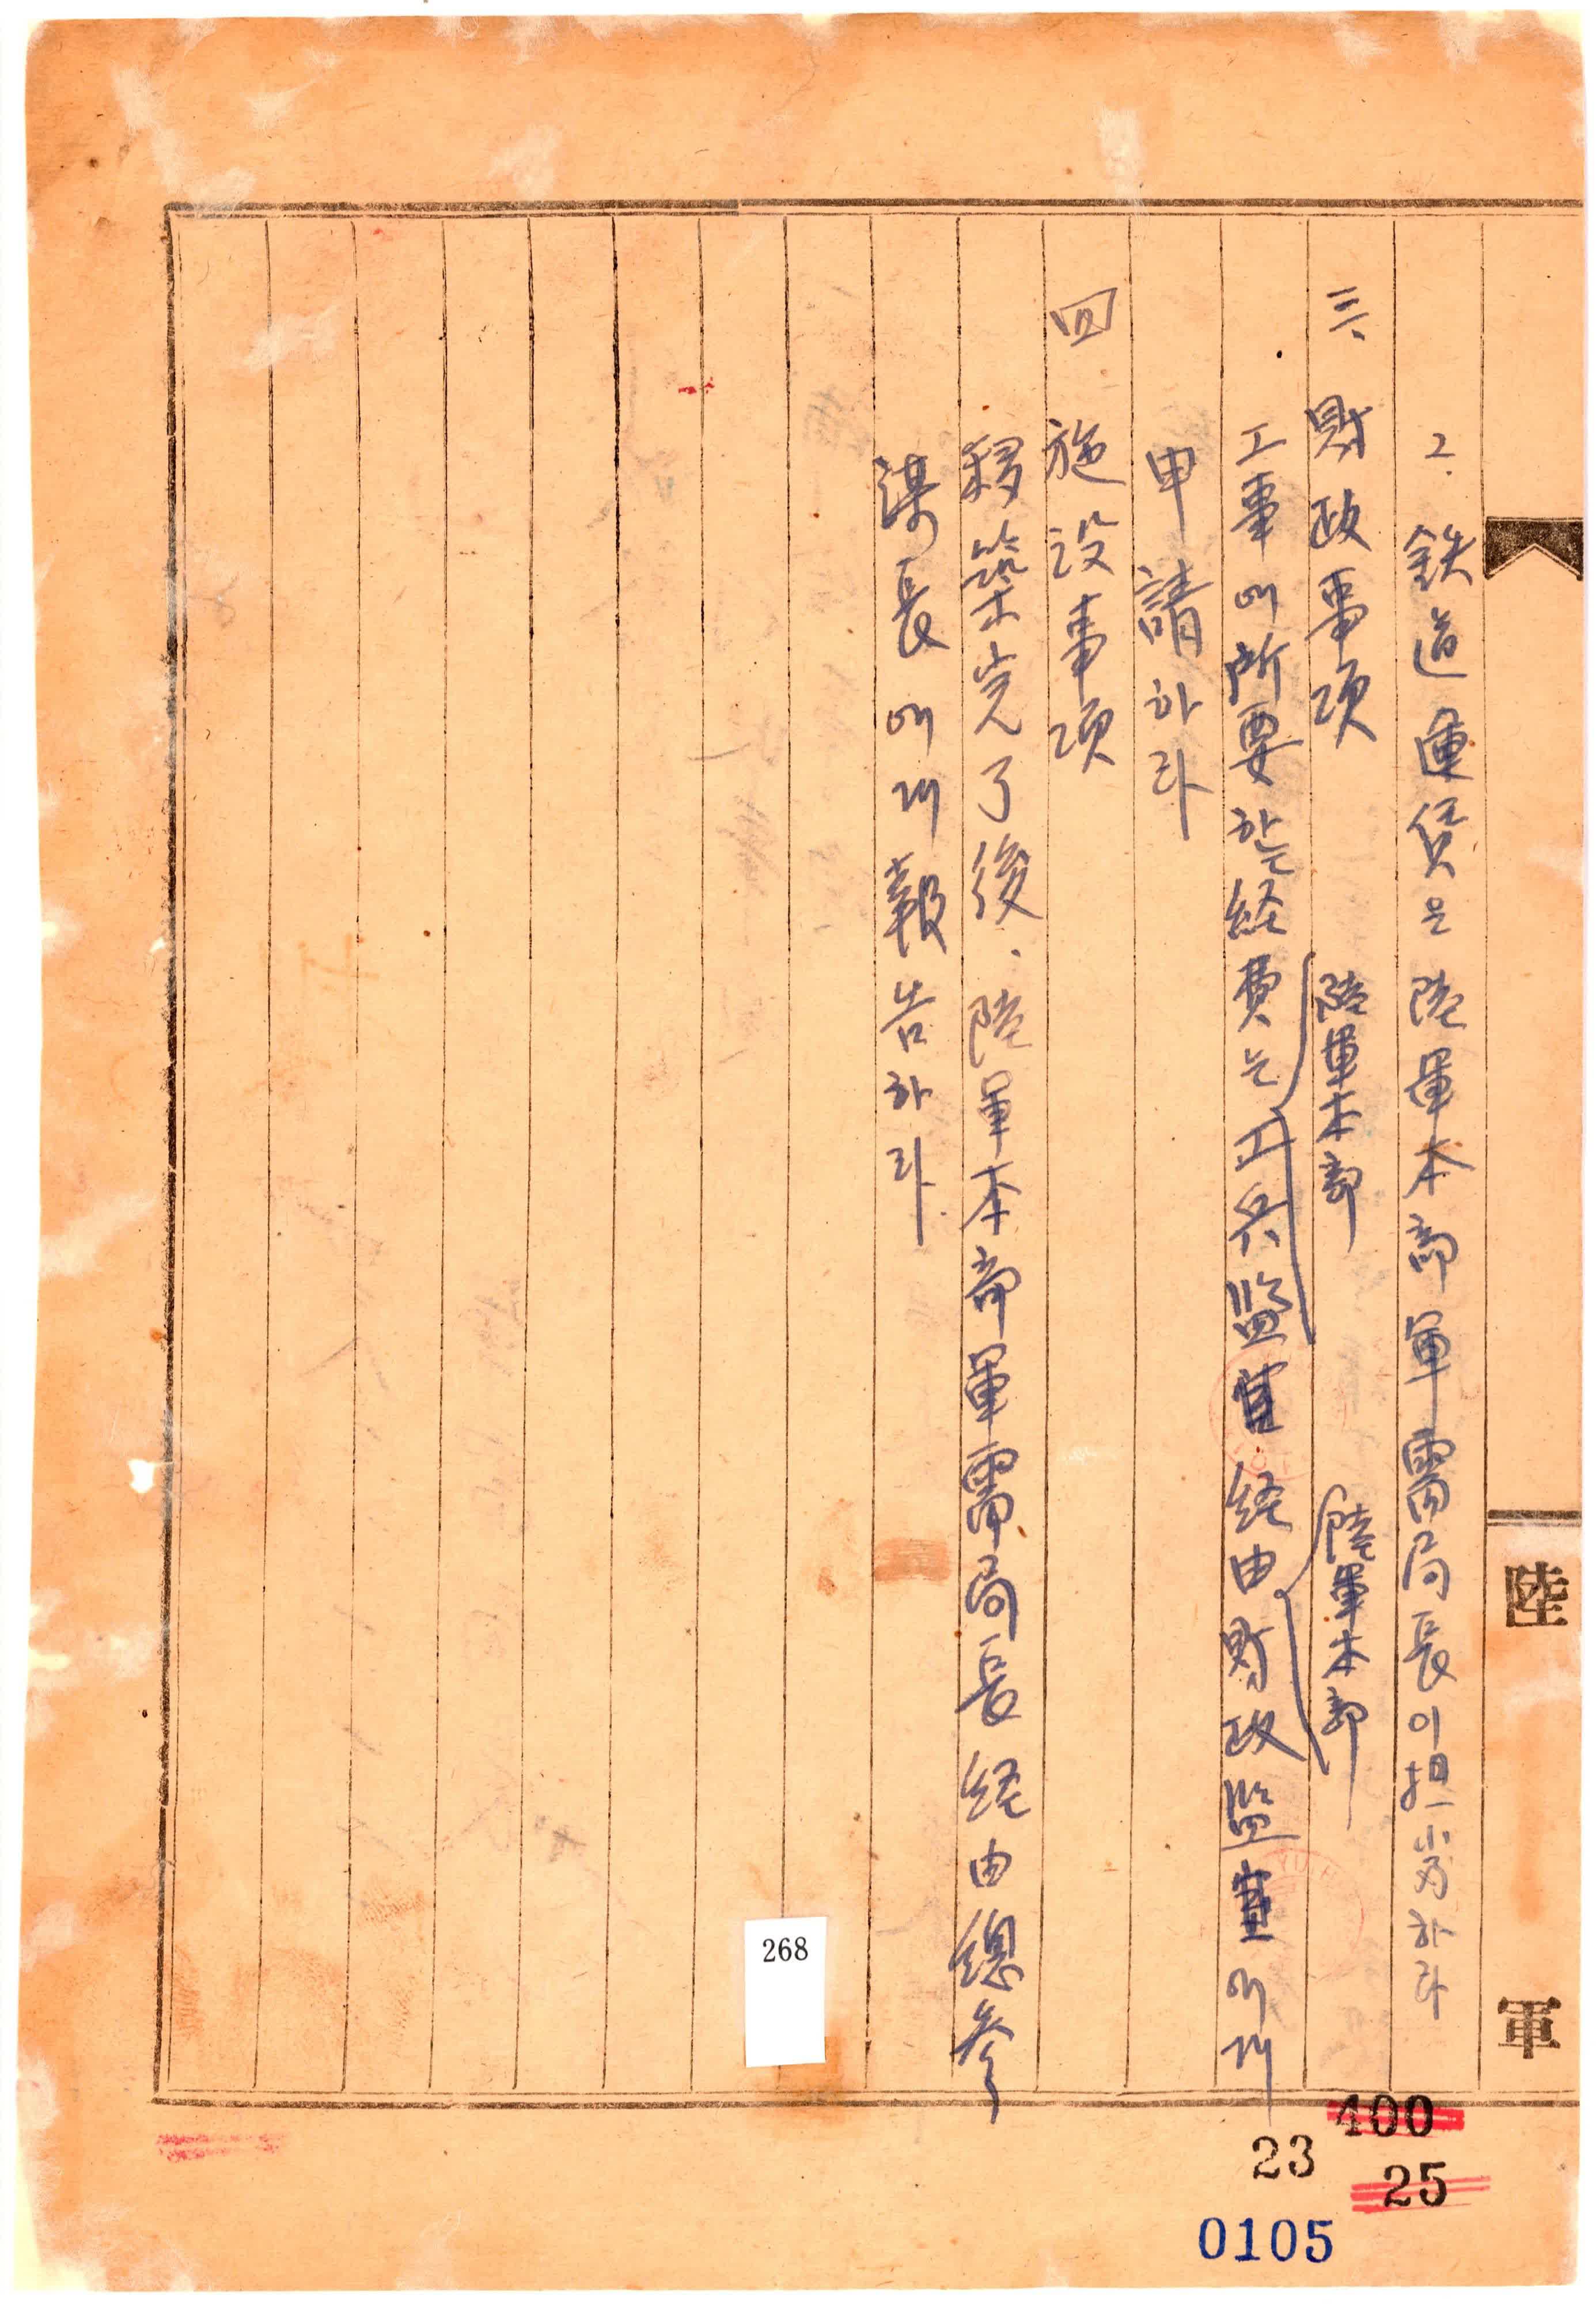 2. 鉄道運賃은 陸軍本部軍需局長이 担當하라
三、財政事項
陸軍本部
陸軍本部
工事에 所要하는 経費는 工兵監室 経由 財政監室에게
申請하라
四、施設事項
移築完了後、陸軍本部軍需局長 経由 總參
謀長에게 報告하라
陸 軍
268
400
23
25
0105